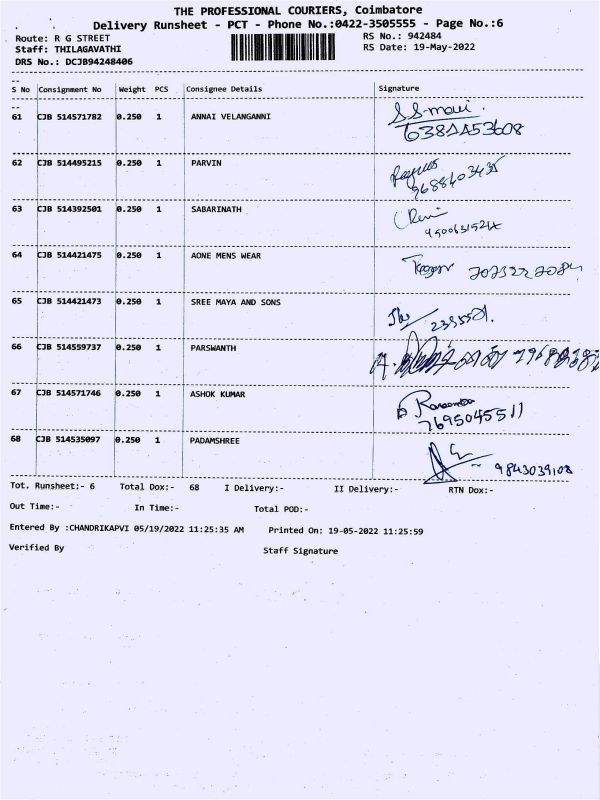 THE PROFESSIONAL COURIERS, Coimbatore
Delivery Runsheet - PCT - Phone No.:0422-3505555 - Page No.:6
Route: R G STREET RS No.: 942484
Staff: THILAGAVATHI RS Date: 19-May-2022
DRS No.: DCJB94248406
S No Consignment No Weight PCS Consignee Details Signature
61 CJB 514571782 0.250 1 ANNAI VELANGANNI
62 CJB 514495215 0.250 1 PARVIN
63 CJB 514392501 0.250 1 SABARINATH
64 CJB 514421475 0.250 1 AONE MENS WEAR
65 CJB 514421473 0.250 1 SREE MAYA AND SONS
66 CJB 514559737 0.250 1 PARSWANTH
67 CJB 514571746 0.250 1 ASHOK KUMAR
7695045511
68 CJB 514535097 0.250 1 PADAMSHREE
9843039108
Tot. Runsheet:- 6 Total Dox:- 68 I Delivery:- II Delivery:- RTN Dox:-
Out Time:- In Time:- Total POD:-
Entered By :CHANDRIKAPVI 05/19/2022 11:25:35 AM Printed On: 19-05-2022 11:25:59
Verified By Staff Signature